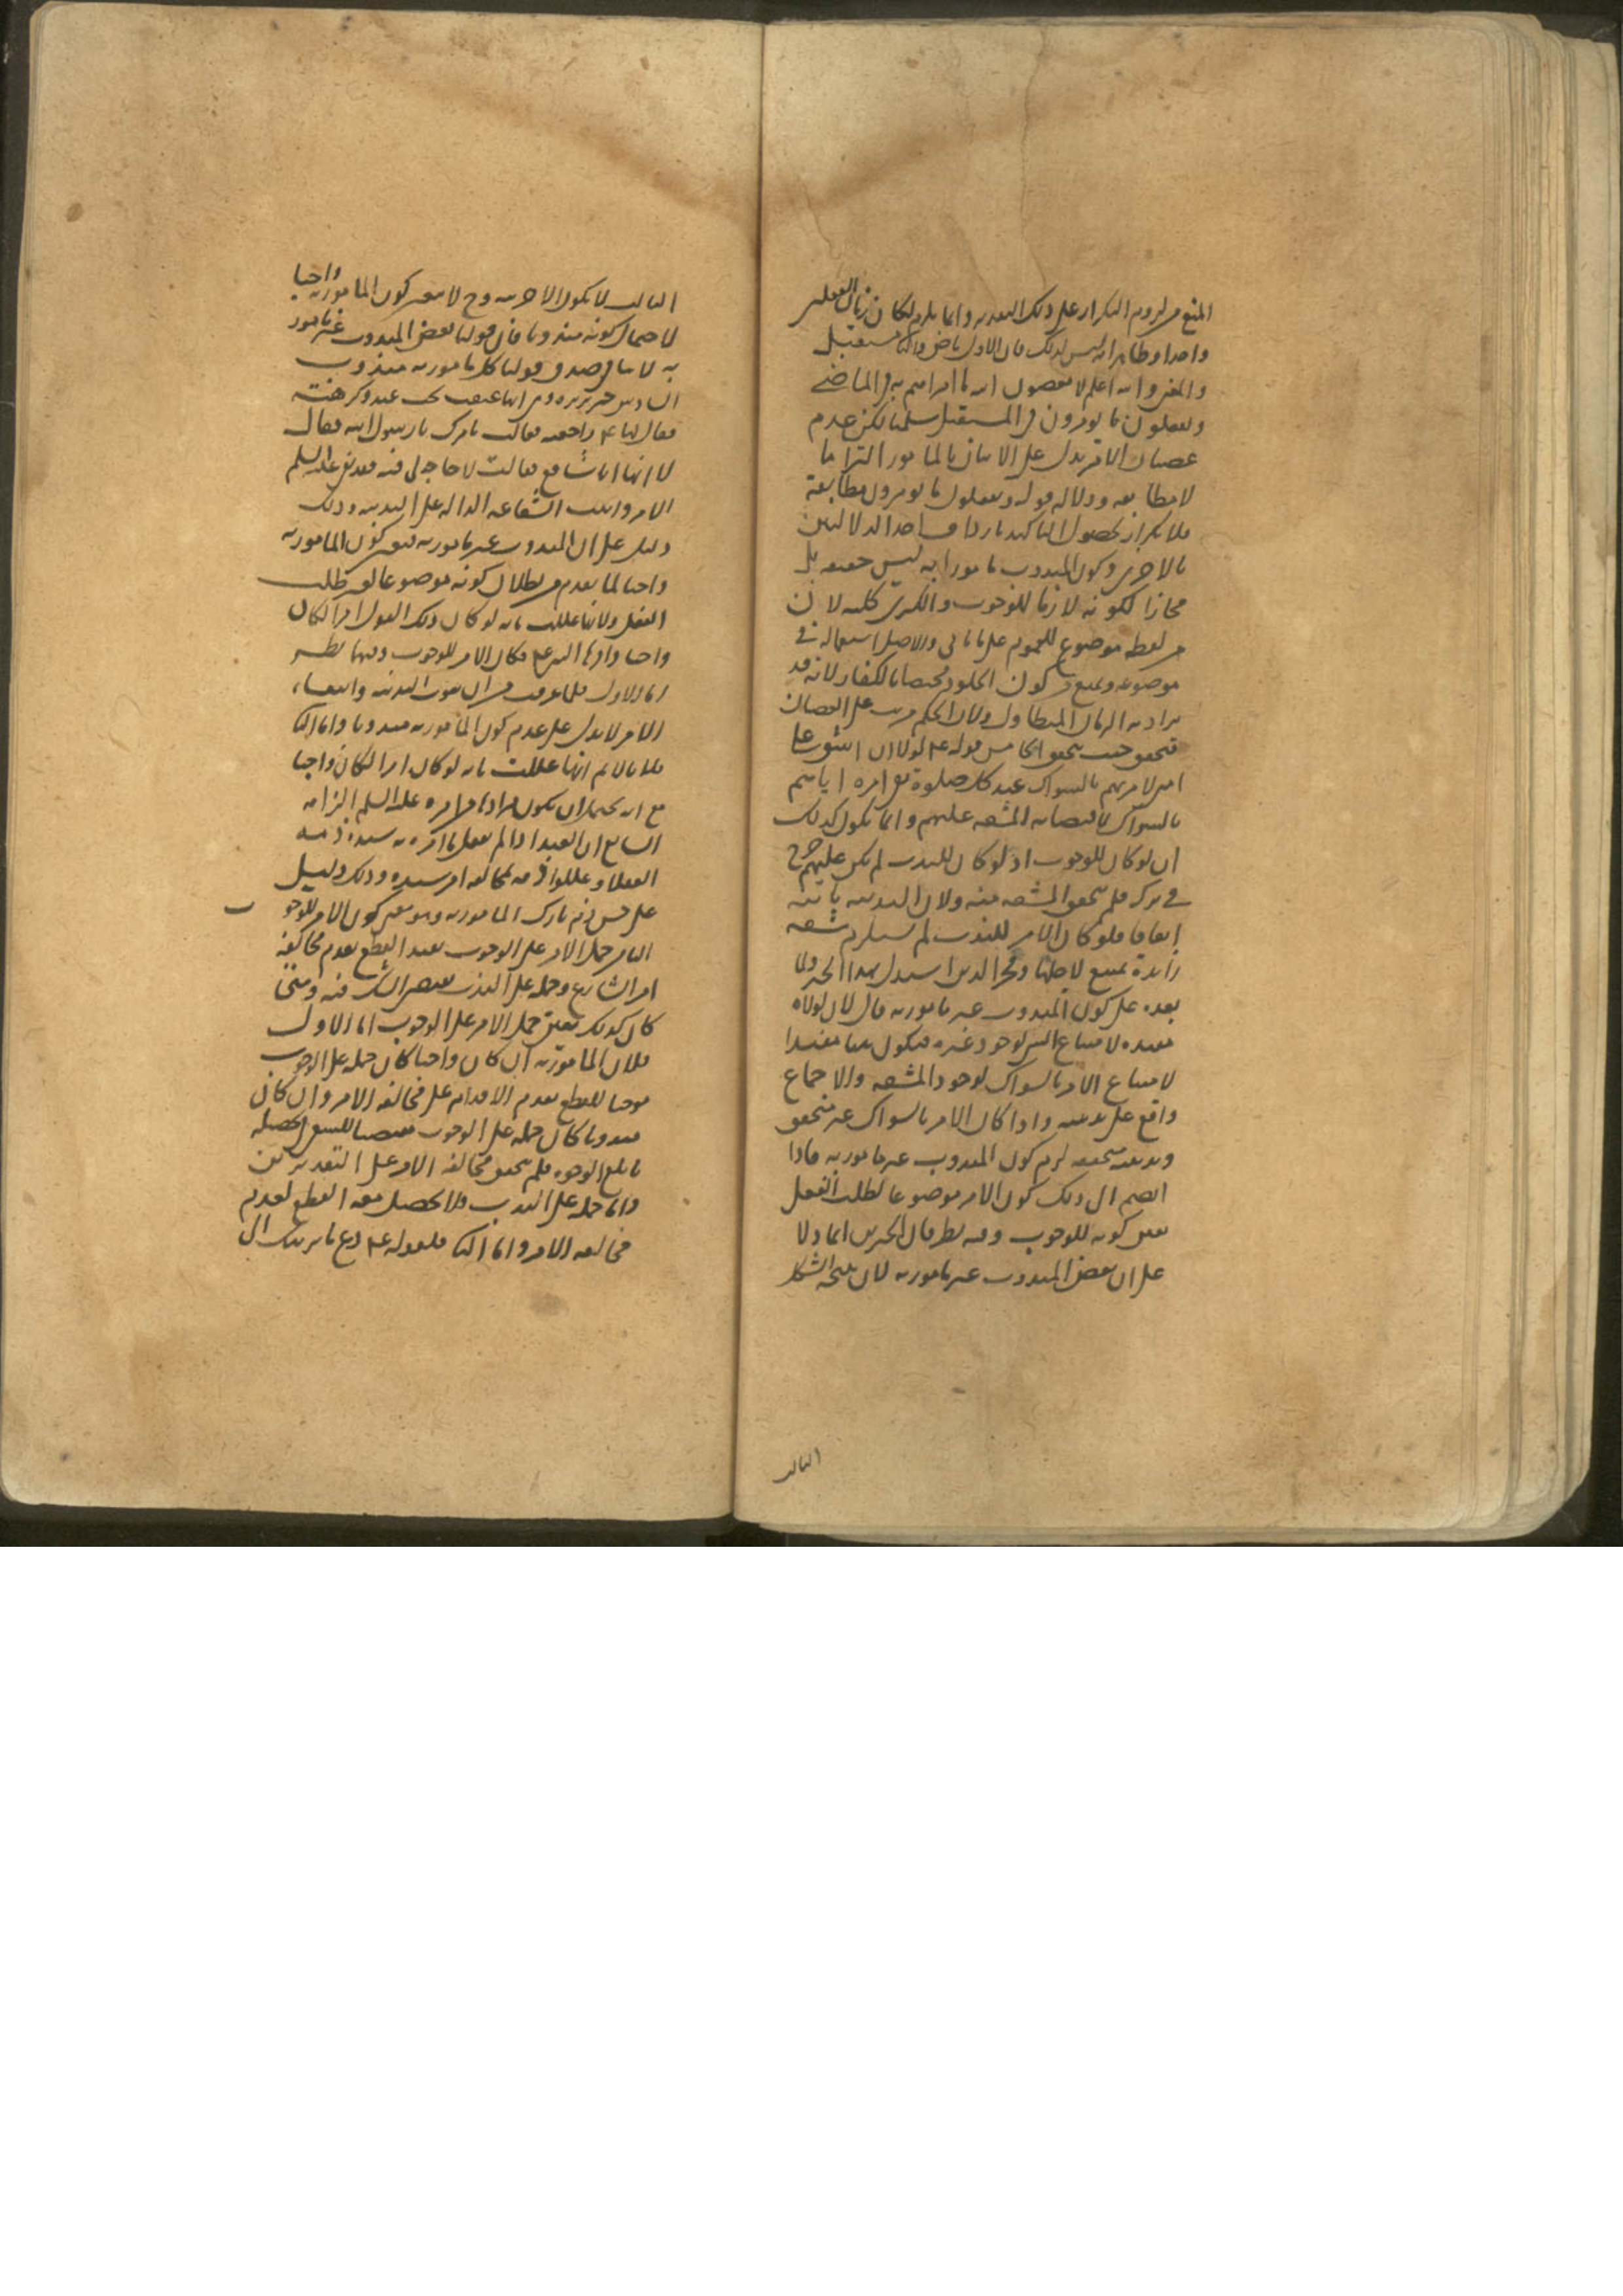 المنع من لزوم التكرار على ذلك التقدير وانما يلزم لو كان زمان الفعلين
واحدا وظاهر انه ليس كذلك فان الاول ماض والثاني مستقبل
والمعنى والله اعلم لا يعصون الله ما امرهم به في الماضي
ويفعلون ما يؤمرون في المستقبل سلمنا لكن عدم
عصيان الامر يدل على الاتيان بالمامور التزاما
لا مطابقة ودلالة قوله ويفعلون ما يؤمرون مطابقة
فلا تكرار لحصول التاكيد باحدى الدلالتين
بالاخرى وكون المندوب مامورا به ليس حقيقة بل
مجازا لكونه لازما للوجوب والكبرى كلية لان
من لفظه موضوع للعموم على ما ياتي والاصل استعماله في
موضوعه ويمنع كون الخلود مختصا بالكفار لانه قد
يراد به الزمان المتطاول ولان الحكم مرتب على العصيان
فيتحقق حيث يتحقق الخامس قوله عم لولا ان اشق على
امتى لامرتهم بالسواك عند كل صلوة نفى امره اياهم
بالسواك لاقتضائه المشقة عليهم وانما يكون كذلك
ان لو كان للوجوب اذ لو كان للندب لم يكن عليهم حرج
في تركه فلم يتحقق المشقة منه ولان الندبية ثابتة
اتفاقا فلو كان الامر للندب لم يستلزم مشقة
زائدة يمتنع لاجلها وفخر الدين استدل بهذا الخبر وما
بعده على كون المندوب غير مامور به قال لان لولا
مفيدة لامتناع الشئ لوجود غيره فيكون هنا مفيدا
لامتناع الامر بالسواك لوجود المشقة والاجماع
واقع على ندبيته واذا كان الامر بالسواك غير متحقق
وندبيته متحققة لزم كون المندوب غير مامور به فاذا
انضم الى ذلك كون الامر موضوعا لطلب الفعل
تعين كونه للوجوب وفيه نظر فان الخبرين انما دلا
على ان بعض المندوب غير مامور به لان نتيجة الشكل
الثالث
الثالث لا يكون الا جزئية وح لا يتعين كون المامور به واجبا
لاحتمال كونه مندوبا فان قولنا بعض المندوب غير مامور
به لا ينافي صدق قولنا كل مامور به مندوب
السادس خبر بريرة وهى انها عتقت تحت عبد وكرهته
فقال لها عم راجعيه فقالت بامرك يا رسول الله فقال
لا انما انا شافع فقالت لا حاجة لى فيه فقد نفى عليه السلم
الامر واثبت الشفاعة الدالة على الندبية وذلك
دليل على ان المندوب غير مامور به فتعين كون المامور به
واجبا لما تقدم من بطلان كونه موضوعا لغير طلب
الفعل ولانها عللت بانه لو كان ذلك القول امرا لكان
واجبا واقرها النبي عم فكان الامر للوجوب وفيهما نظر
اما الاول فلما عرفت من ان ثبوت الندبية وانتفاء
الامر لا يدل على عدم كون المامور به مندوبا واما الثاني
فلانا لا نم انها عللت بانه لو كان امرا لكان واجبا
مع انه يحتمل ان يكون مرادها من امره عليه السلم الزامه
السابع ان العبد اذا لم يفعل ما امره به سيده ذمه
العقلاء وعللوا ذمه بمخالفة امر سيده وذلك دليل
على حسن ذم تارك المامور به وهو معنى كون الامر للوجوب
الثامن حمل الامر على الوجوب يفيد القطع بعدم مخالفة
امر الشارع وحمله على الندب يقتضى الشك فيه ومتى
كان كذلك تعين حمل الامر على الوجوب اما الاول
فلان المامور به ان كان واجبا كان حمله على الوجوب
موجبا للقطع بعدم الاقدام على مخالفة الامر وان كان
مندوبا كان حمله على الوجوب مقتضيا للسعى لتحصيله
بابلغ الوجوه فلم يتحقق مخالفة الامر على التقديرين
واما حمله على الندب فلا يحصل معه القطع لعدم
مخالفة الامر واما الثاني فلقوله عم دع ما يريبك الى